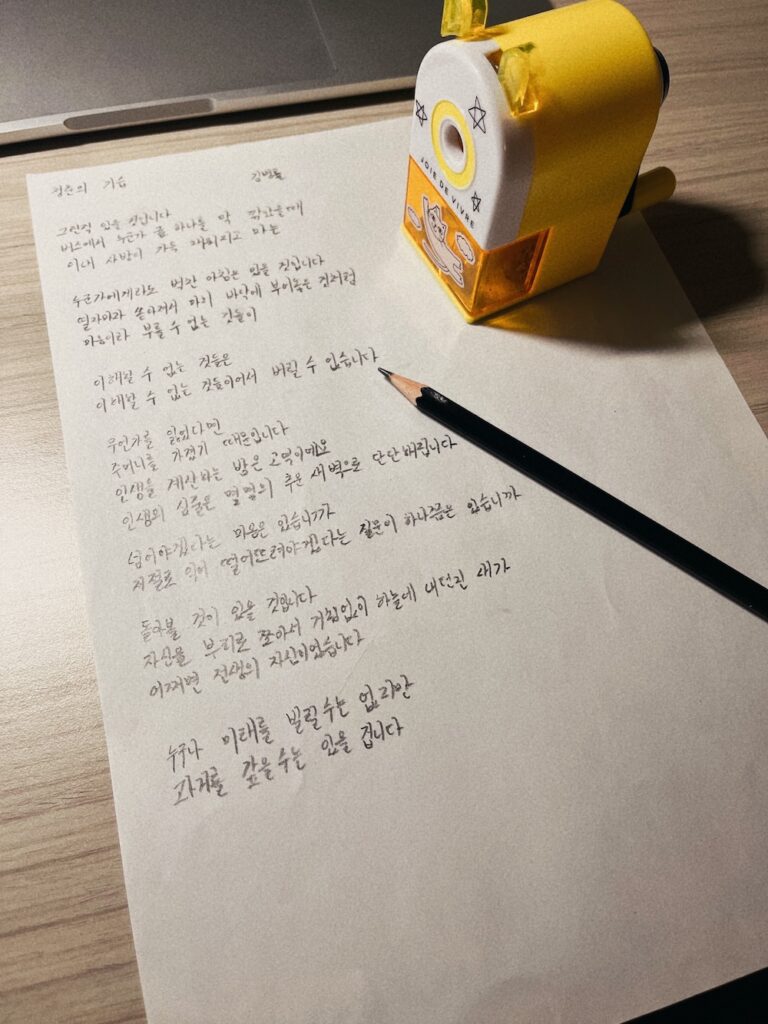 청춘의 기습
그런적 있을 것입니다
버스에서 누군가 귤 하나를 막 깠을때
이내 사방이 가득 채워지고 마는
누군가에게라도 벅찬 아침은 있을 것입니다
열자마자 쏟아져서 마치 바닥에 부어놓은 것처럼
마음이라 부를 수 없는 것들이
이해할 수 없는 것들은
이해될 수 없는 것들이어서 버릴 수 있습니다
무언가를 잃었다면
주머니를 가볍기 때문입니다
인생을 계산하는 밤은 고역이에요
인생의 심줄은 몇몇의 추운 새벽으로 단단해집니다
넘어야겠다는 마음은 있습니까
저절로 익어 떨어뜨려야겠다는 질문이 하나쯤은 있습니까
돌아볼 것이 있을 것입니다
자신을 부리로 쪼아서 거침없이 하늘에 내던진 새가
어쩌면 전생의 자신이었습니다
누구나 미래를 빌릴수는 없지만
과거를 갚을수는 있을 겁니다
JOIE DE VIVRE